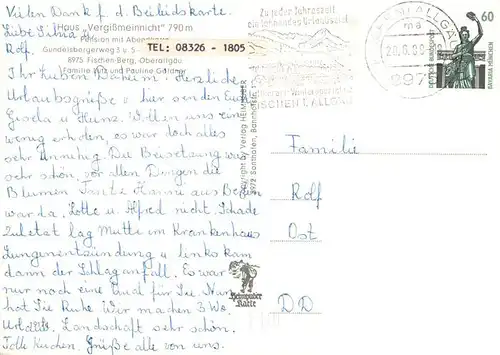 Vielen Dank f. d. Beileidskarte.
Liebe Silvia,
Rolf.
Haus „Vergißmeinnicht" 790 m
Pension mit
Gundelsbergerweg 3 u. 5
TEL: 08326 - 1805
8975 Fischen-Berg, Oberallgäu
Familie und Pauline
Ihr Lieben Daheim. Herzliche
Urlaubsgrüße v. hier senden Euch
Gisela u. Heinz. Wollen uns ein
wenig erholen, es war doch alles
sehr Die Beisetzung war
sehr schön, vor allen Dingen die
Blumen Tante Hanni aus
war da. Lotte u. Alfred nicht. Schade
Zuletzt lag Mutti im Krankenhaus
Lungenentzündung u. links kam
dann der Schlaganfall. Es war
nur noch eine Qual für Sie. Nun
hat Sie Ruhe. Wir machen 3 Wo.
Urlaub. Landschaft sehr schön.
Tolle Kuchen. Grüße alle von uns.
Copyright by Verlag
8972 Sonthofen,
Heimhuber
Karte
Zu jeder Jahreszeit
ein lohnendes Urlaubsziel
FISCHEN I. ALLGÄU
ALLGÄU
ma
897
60
DEUTSCHE BUNDESPOST
BAVARIA MÜNCHEN
Familie
Rolf
Ost
DD